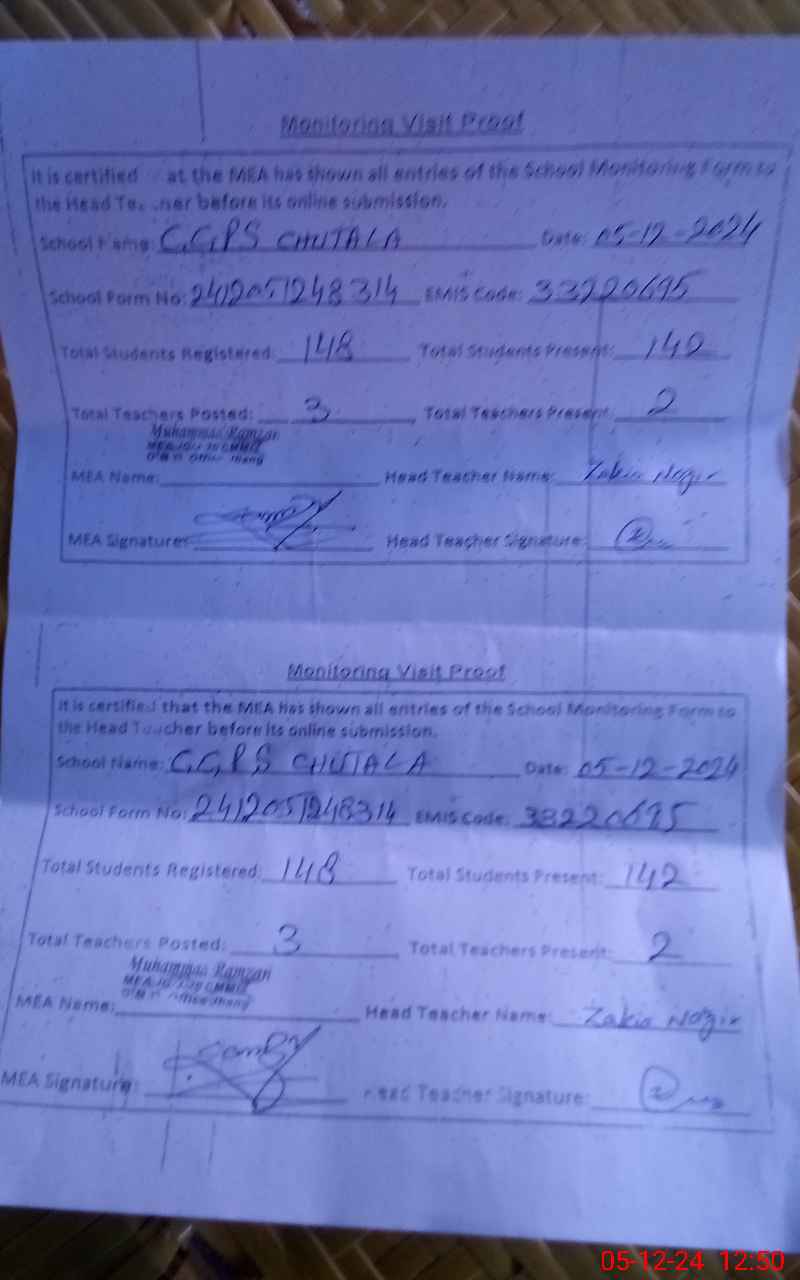 Monitoring Visit Proof
It is certified at the MEA has shown all entries of the School Monitoring Form to
the Head Te her before its online submission.
School Name: GGPS CHUTALA Date: 05-12-2024
School Form No: 2412051248314 EMIS Code: 33220695
Total Students Registered: 148 Total Students Present:
Total Teachers Posted: 3 Total Teachers Present: 2
Muhammad Ramzan
MEA Name: Head Teacher Name: Zakia
MEA Signature: Head Teacher Signature:
Monitoring Visit Proof
It is certified that the MEA has shown all entries of the School Monitoring Form to
the Head Teacher before its online submission.
School Name: GGPS CHUTALA Date: 05-12-2024
School Form No: 2412051248314 EMIS Code: 33220695
Total Students Registered: 148 Total Students Present: 142
Total Teachers Posted: 3 Total Teachers Present: 2
Muhammad Ramzan
MEA Name: Head Teacher Name: Zakia
MEA Signature: Head Teacher Signature:
05-12-24 12:50